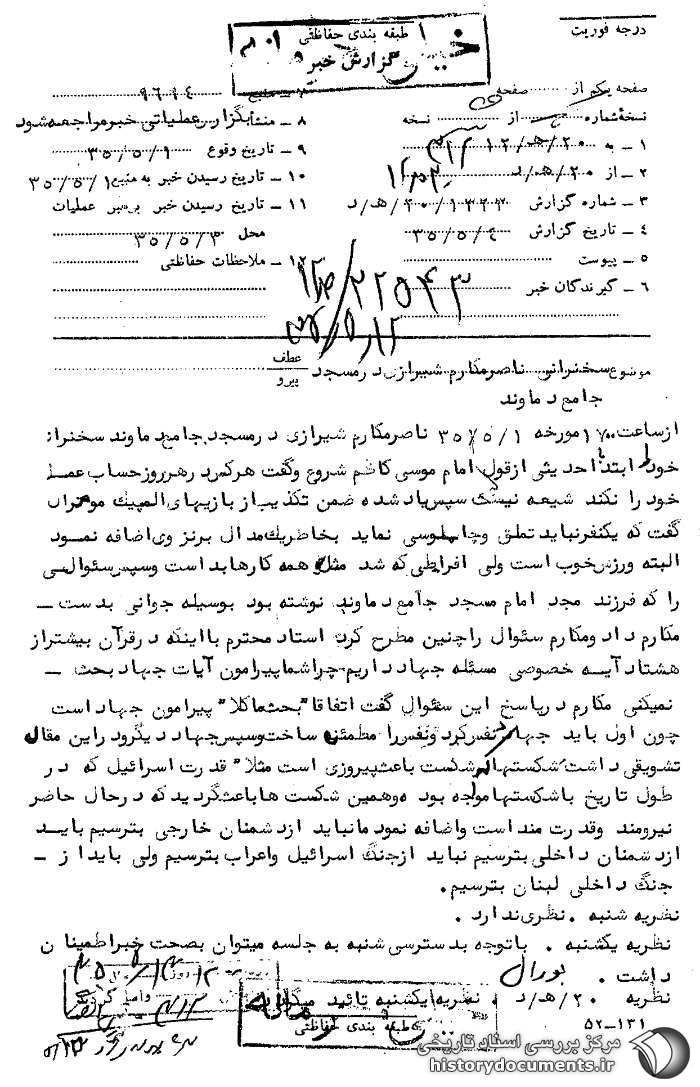 درجه فوریت
طبقه بندی حفاظتی
گزارش خبر
صفحه یکم از صفحه
نسخهٔ شماره از نسخه
۱ ــ به ۲۰/ هـ/ ۱۲
۲ ــ از ۲۰/هـ/د
۳ ــ شماره گزارش ۲۰/۱۳۲۳/هـ/د
۴ ــ تاریخ گزارش ۳۵/۵/۴
۵ ــ پیوست
۶ ــ گیرندگان خبر
۷ ــ منبع ۹۶۱۴
۸ ــ منشأ بگزارش عملیاتی خبر مراجعه شود
۹ ــ تاریخ وقوع ۳۵/۵/۱
۱۰ ــ تاریخ رسیدن خبر به منبع ۳۵/۵/۱
۱۱ ــ تاریخ رسیدن خبر برهبر عملیات
محل ۳۵/۵/۳
۱۲ ــ ملاحظات حفاظتی
۳۲۲۵۴۳
موضوع سخنرانی ناصر مکارم شیرازی در مسجد
عطف
پیرو
جامع دماوند
از ساعت ۱۷۰۰ مورخه ۳۵/۵/۱ ناصر مکارم شیرازی در مسجد جامع دماوند سخنرانی
خود را ابتدا با حدیثی از قول امام موسی کاظم شروع وگفت هرکس در هر روز حساب عمل
خود را نکند شیعه نیست سپس یاد شده ضمن تکذیب از بازیهای المپیک مونترال
گفت که یکنفر نباید تملق وچاپلوسی نماید بخاطر یک مدال برنز وی اضافه نمود
البته ورزش خوب است ولی افراطی که شد مثل همه کارها بد است وسپس سئوالی
را که فرزند مجد امام مسجد جامع دماوند نوشته بود بوسیله جوانی بدست ــ
مکارم داد ومکارم سئوال را چنین مطرح کرد استاد محترم با اینکه در قرآن بیشتر از
هشتاد آیه خصوصی مسئله جهاد داریم چرا شما پیرامون آیات جهاد بحث ــ
نمیکنی مکارم در پاسخ این سئوال گفت اتفاقا" بحث ما کلا" پیرامون جهاد است
چون اول باید جهاد نفس کرد ونفس را مطمئن ساخت وسپس جهاد دیگر ودر این مقال
تشویقی داشت که شکستها شکست باعث پیروزی است مثلا" قدرت اسرائیل که در
طول تاریخ باشکستها مواجه بود وهمین شکست ها باعث گردید که در حال حاضر
نیرومند وقدرت مند است واضافه نمود ما نباید از دشمنان خارجی بترسیم باید
از دشمنان داخلی بترسیم نباید از جنگ اسرائیل واعراب بترسیم ولی باید از ــ
جنگ داخلی لبنان بترسیم.
نظریه شنبه . نظری ندارد .
نظریه یکشنبه . باتوجه بدسترسی شنبه به جلسه میتوان بصحت خبر اطمینان
داشت .
نظریه ۲۰/هـ/د . نظریه یکشنبه تائید میگردد
طبقه بندی حفاظتی
۵۲ــ۱۳۱
مرکز بررسی اسناد تاریخی
historydocuments.ir